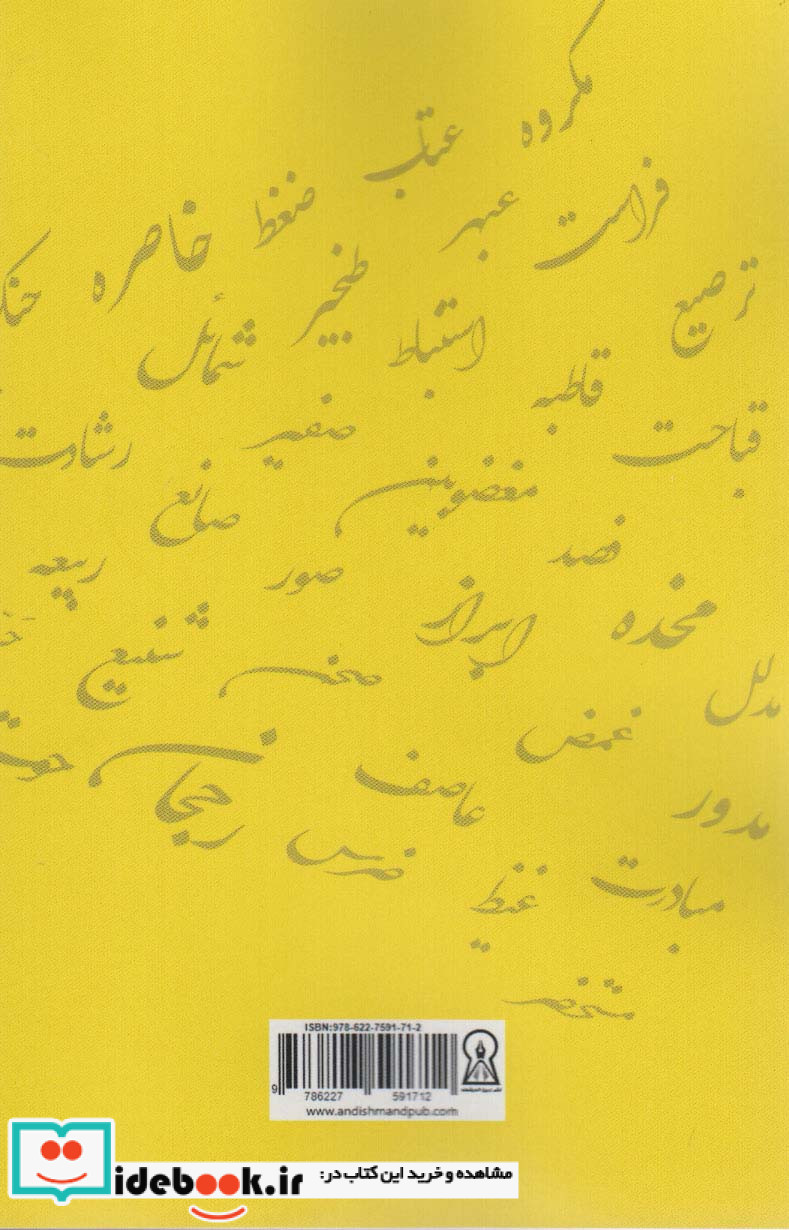 مکروه
عتاب
فراست
عبهر
ضغظ
خاصره
ترصیع
استنباط
طنجیر
شمائل
قاطبه
قباحت
صفیر
رشادت
مغضوبین
صانع
فصد
صور
ربیعه
مخده
ابراز
شنیع
مدلل
غمض
عاصف
رجحان
مدور
ضرس
مبادرت
غیظ
ISBN:978-622-7591-71-2
9 786227 591712
www.andishmandpub.com
مشاهده و خرید این کتاب در:
idebook.ir